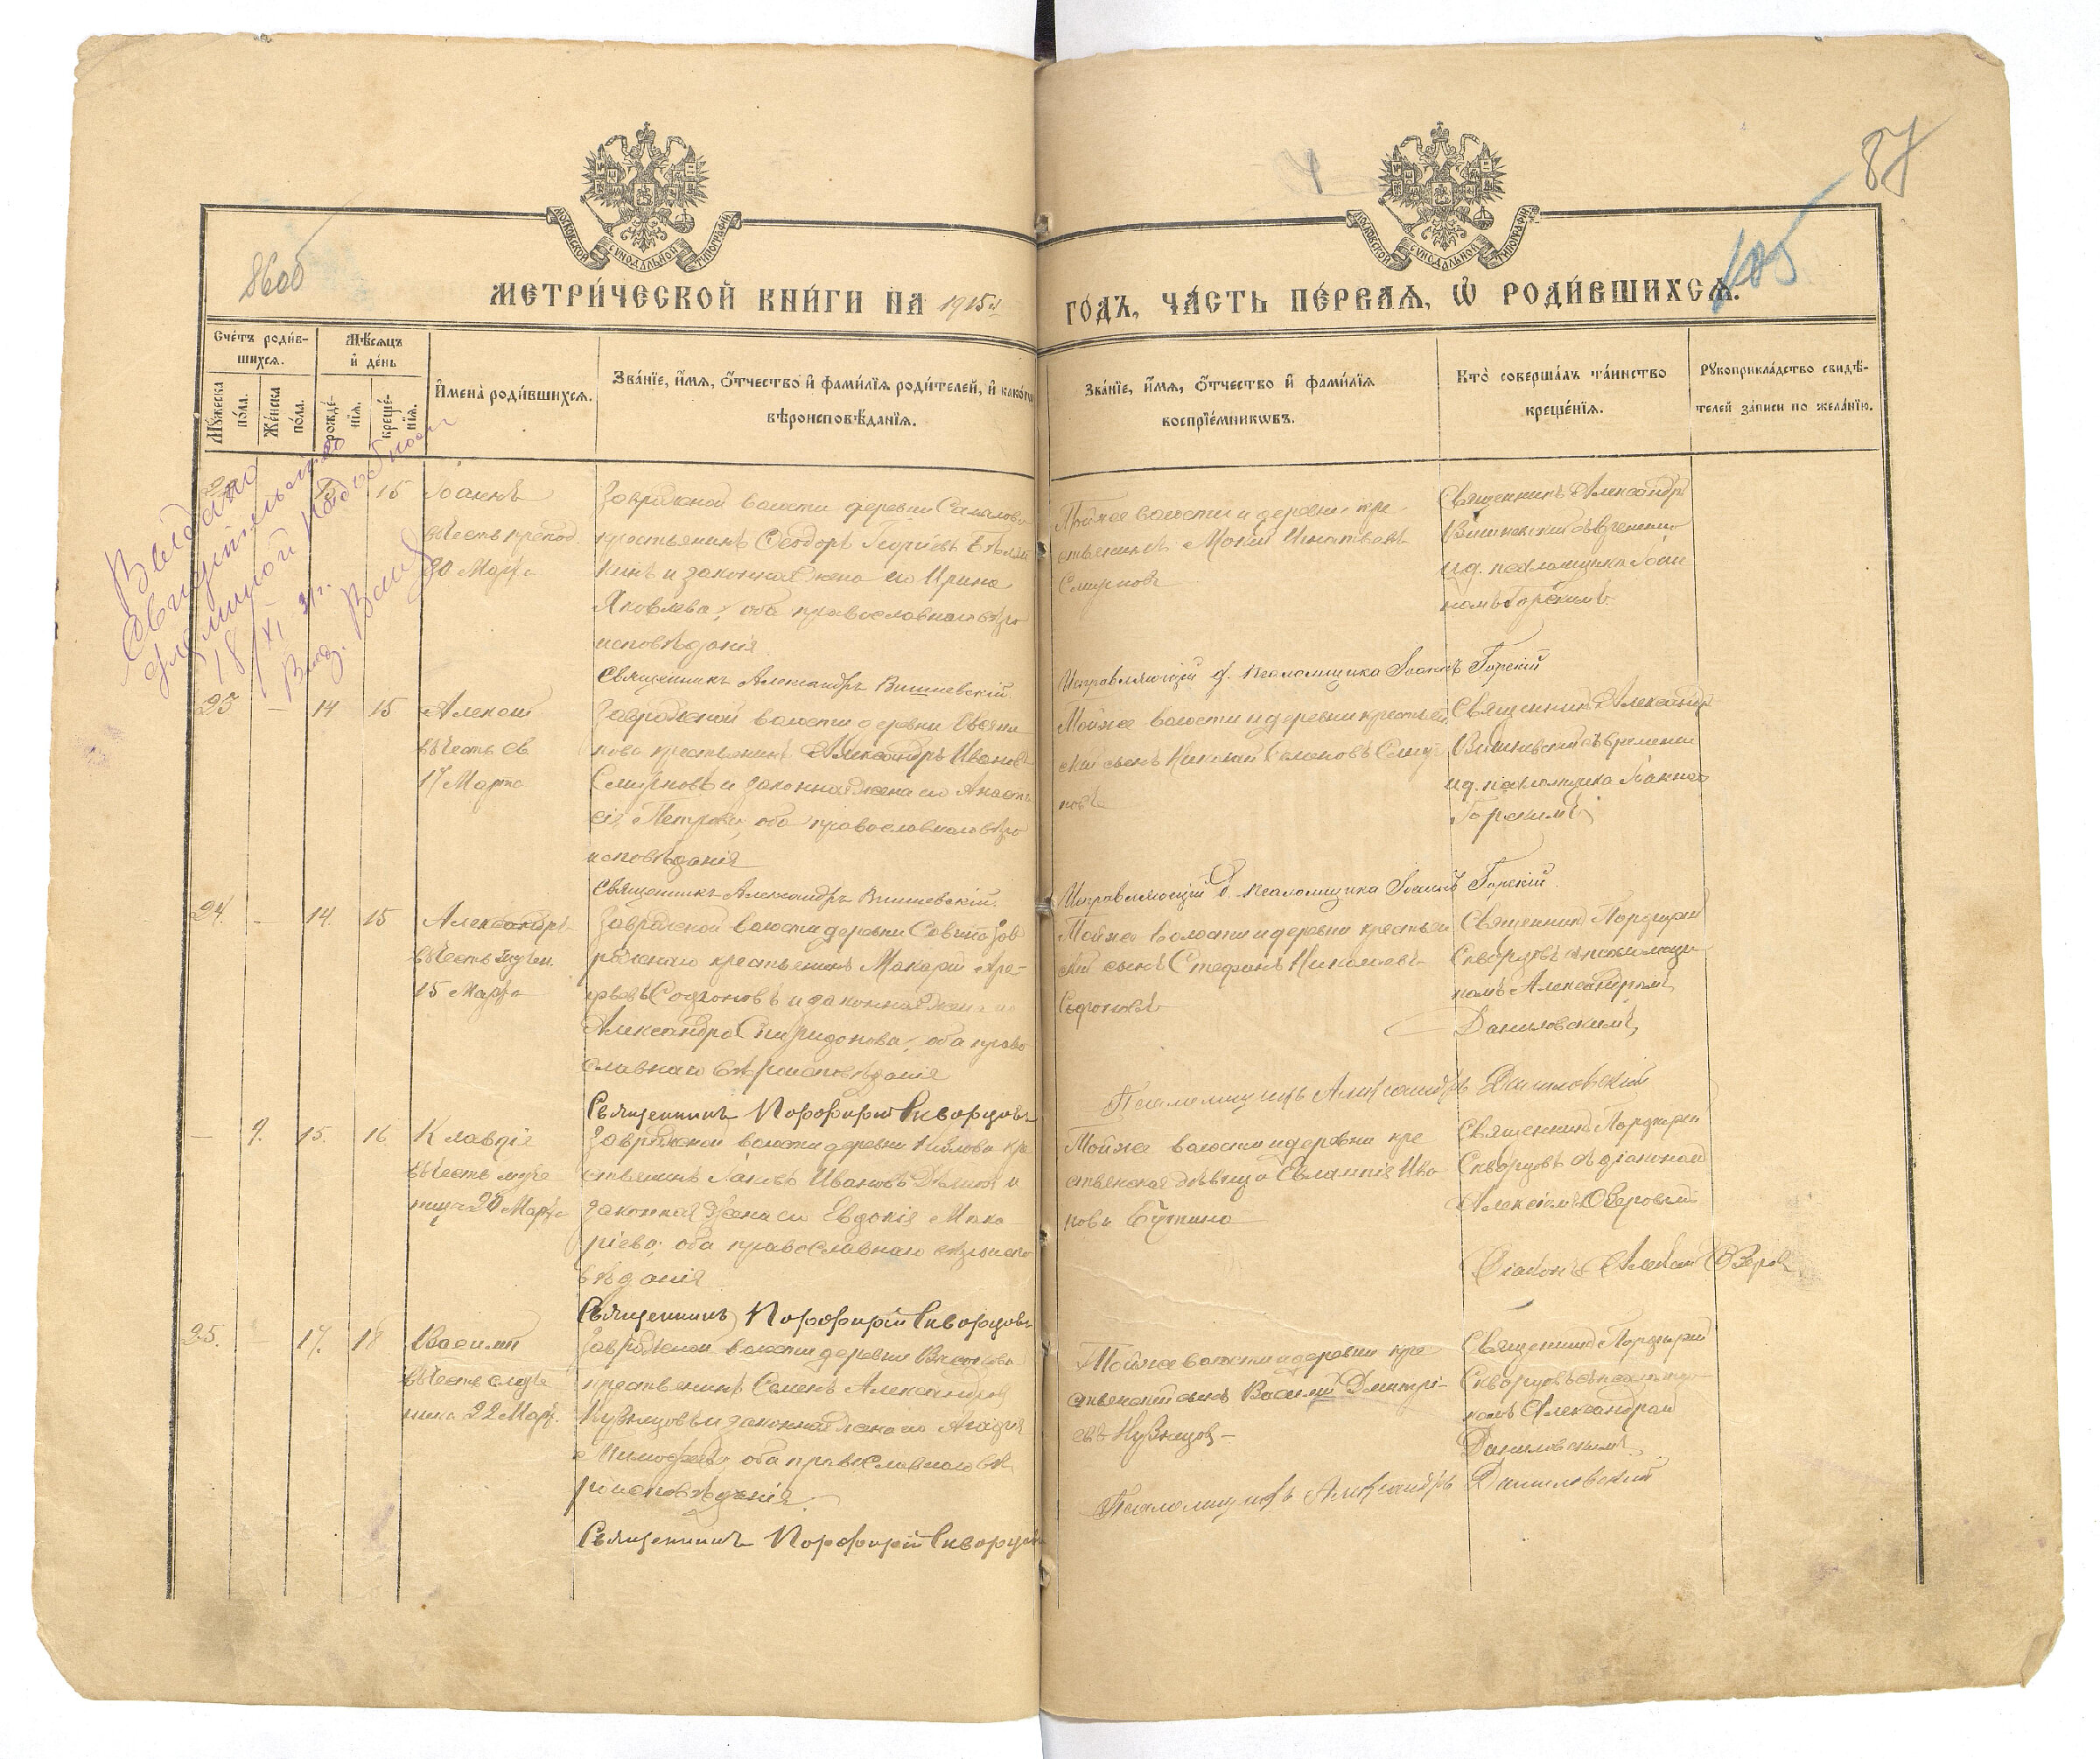 87
105
8600
МОСКОВСКОЙ СѴНОДАЛЬНОЙ ТИПОГРАФІИ
МОСКОВСКОЙ СѴНОДАЛЬНОЙ ТИПОГРАФІИ
МЕТРИ́ЧЕСКОЙ КНИ́ГИ НА 1915й
ГО́ДЪ, ЧА́СТЬ ПЕ́РВАѦ, Ѽ РОДИ́ВШИХСѦ.
Сче́тъ роди́в-
шихсѧ.
Мѣ́сѧцъ
и҆ де́нь
Мꙋ́жеска
по́ла.
Же́нска
по́ла.
рожде́-
нїѧ.
креще́-
нїѧ.
И҆мена̀ роди́вшихсѧ.
Зва́нїе, и҆́мѧ, ѻ҆́тчество и҆ фами́лїѧ роди́телей, и҆ како́гѡ
вѣроисповѣ́данїѧ.
Зва́нїе, и҆́мѧ, ѻ҆́тчество и҆ фами́лїѧ
воспрїе́мникѡвъ.
Кто̀ соверша́лъ та́инство
креще́нїѧ.
Рꙋкоприкла́дство свидѣ́-
телей за́писи по жела́нїю.
Выдано
18/XI 31 г.
15
Іоаннъ
въ честь препод.
30 Марта
волости деревни
крестьянинъ Ѳеодоръ Георгіевъ
кинъ и законная жена его Ирина
Яковлева, оба православнаго вѣро
исповѣданія
Священникъ Александръ Вишневскій.
Той же волости и деревни кре
стьянинъ Мокій Игнатьевъ
Смирновъ
Священникъ Александръ
Вишневскій съ временно
и.д. псаломщика Іоан
номъ Горскимъ
Исправляющій д. псаломщика Іоаннъ Горскій
23
–
14
15
Алексій
въ честь св.
17 Марта
волости деревни
ново крестьянинъ Александръ Ивановъ
Смирновъ и законная жена его Анаста
сія Петрова, оба православнаго вѣро
исповѣданія
Священникъ Александръ Вишневскій.
Той же волости и деревни крестьян
скій сынъ Николай Семеновъ Смир
новъ
Священникъ Александръ
Вишневскій съ временно
и.д. псаломщика Іоанномъ
Горскимъ
Исправляющій д. псаломщика Іоаннъ Горскій.
24.
–
14.
15
Александръ
въ честь мучен.
15 Марта
волости деревни
крестьянинъ Макарій
Софроновъ и законная жена его
Александра Спиридонова, оба право
славнаго вѣроисповѣданія
Священникъ Порфирій Скворцовъ
Той же волости и деревни крестьян
скій сынъ Стефанъ Николаевъ
Софроновъ
Священникъ Порфирій
Скворцовъ съ псаломщи
комъ Александромъ
Даниловскимъ
Псаломщикъ Александръ Даниловскій
–
9.
15.
16
Клавдія
въ честь муче
ницы 20 Марта
волости деревни кре
стьянинъ Іаковъ Ивановъ и
законная жена его Евдокія Мака
ріева, оба православнаго вѣроиспо
вѣданія
Священникъ Порфирій Скворцовъ
Той же волости и деревни кре
стьянская дѣвица Евлампія Ива
нова
Священникъ Порфирій
Скворцовъ съ діакономъ
Алексіемъ Озеровымъ
Діаконъ Алексій Озеровъ
25.
17.
18
Василій
въ честь муче
ника 22 Март.
волости деревни
крестьянинъ Семенъ Александровъ
Кузнецовъ и законная жена его
Тимофеева, оба православнаго вѣ
роисповѣданія.
Священникъ Порфирій Скворцовъ
Той же волости и деревни кре
стьянскій сынъ Василій Дмитрі-
евъ Кузнецовъ
Священникъ Порфирій
Скворцовъ съ псаломщи
комъ Александромъ
Даниловскимъ
Псаломщикъ Александръ Даниловскій